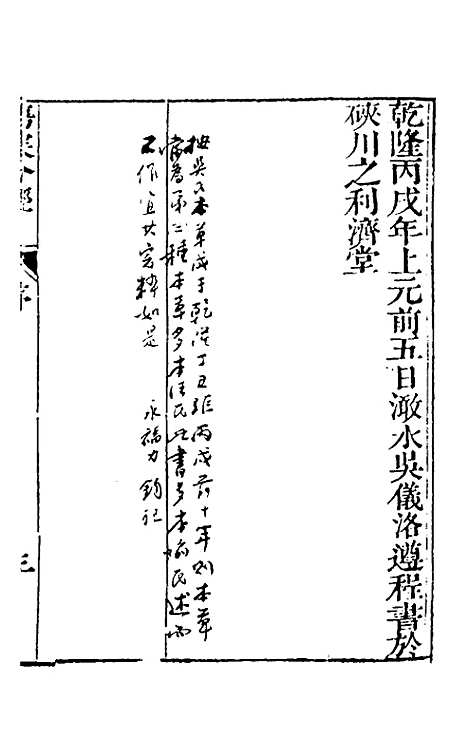 乾隆丙戌年上元前五日澉水吳儀洛遵程書於
硤川之利濟堂
按吳氏本草成于乾隆丁丑距丙戌前十年則本草
當為第二種本草多本汪氏此書多本喻氏述而
不作宜其完粹如是
永福力鈞記
序
三